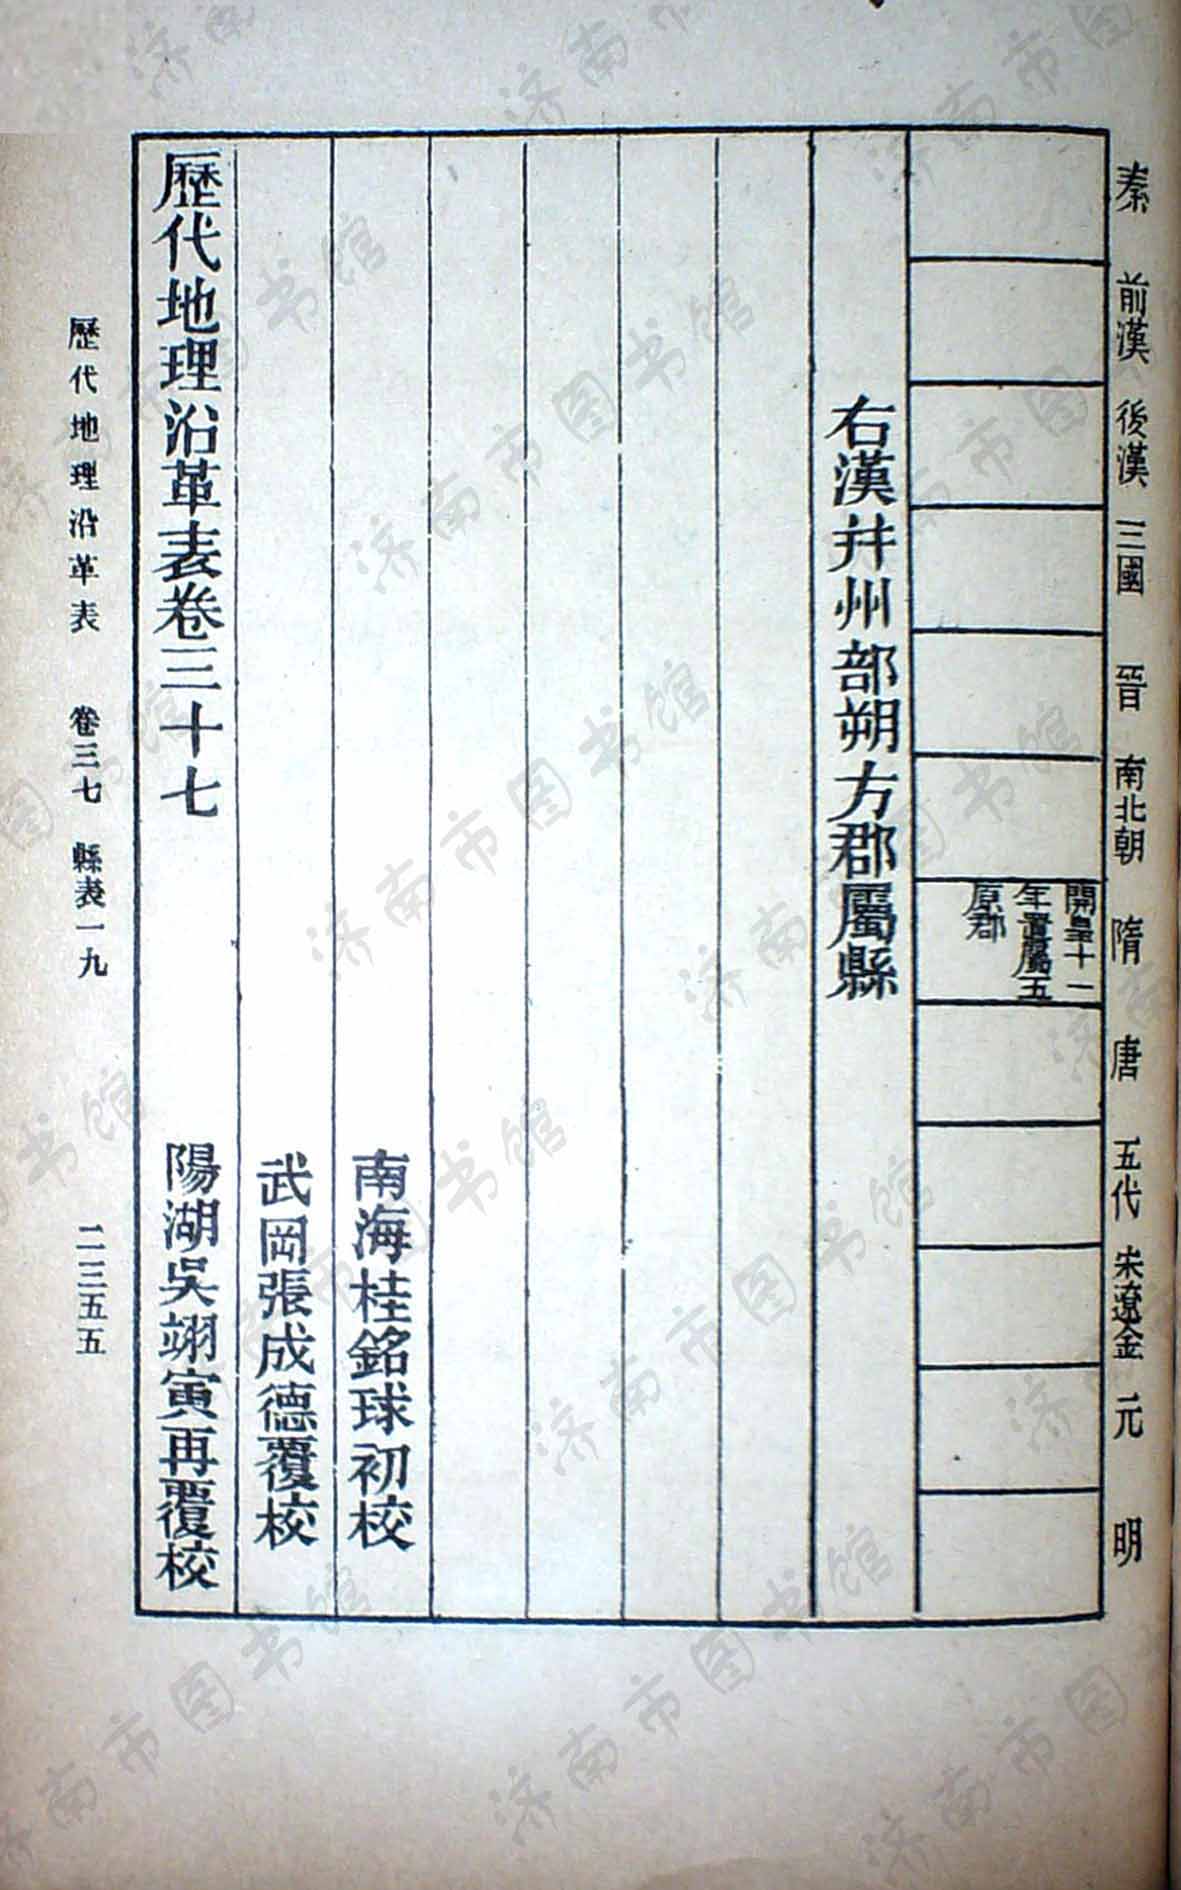 秦 前漢 後漢 三國 晉 南北朝 隋 唐 五代 宋遼金 元 明
開皇十一
年置屬五
原郡
右漢幷州部朔方郡屬縣
南海桂銘球初校
武岡張成德覆校
歷代地理沿革表卷三十七 陽湖吳翊寅再覆校
歷代地理沿革表 卷三七 縣表一九 二三五五
济南市图书馆